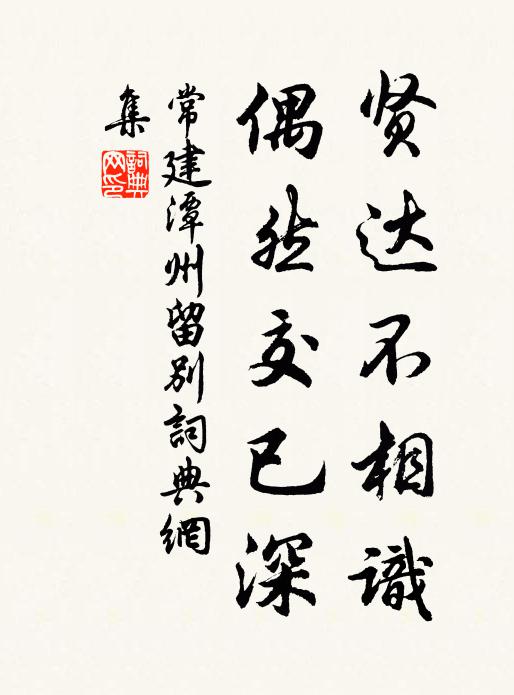 贤达不相識
偶然交已深
常建潭州留别詞典網
集
詞典
网印